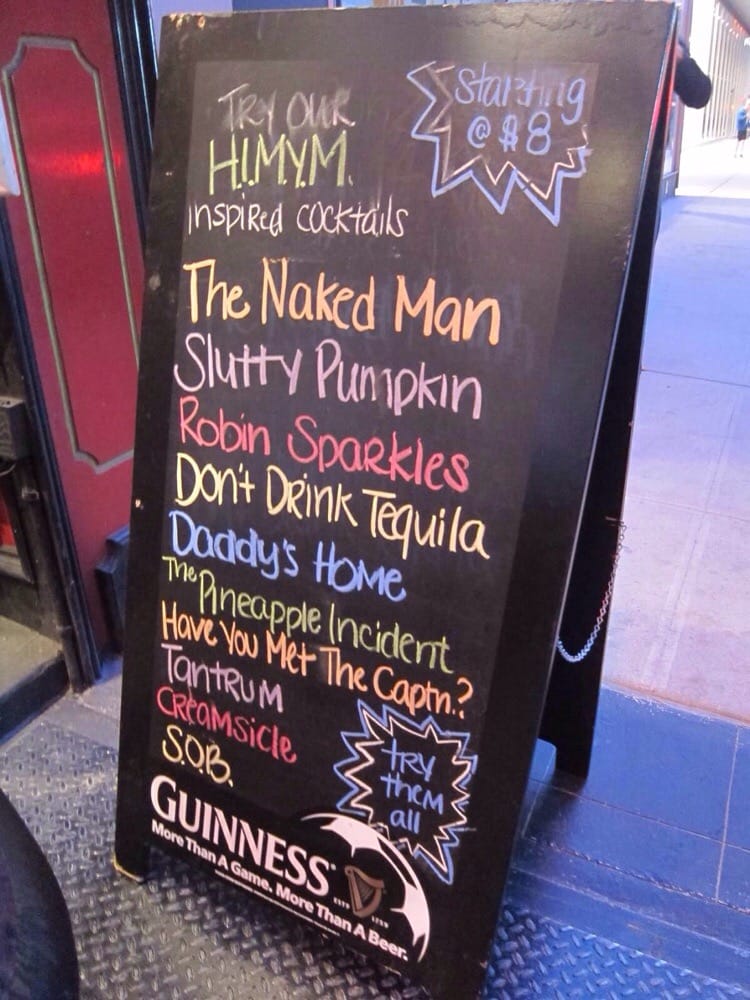 Try our
H.I.M.Y.M.
inspired cocktails
Starting
@ $8
The Naked Man
Slutty Pumpkin
Robin Sparkles
Don't Drink Tequila
Daddy's Home
The Pineapple Incident
Have You Met The Captn.?
Tantrum
Creamsicle
S.O.B.
try
them
all
GUINNESS
ESTD 1759
More Than A Game. More Than A Beer.